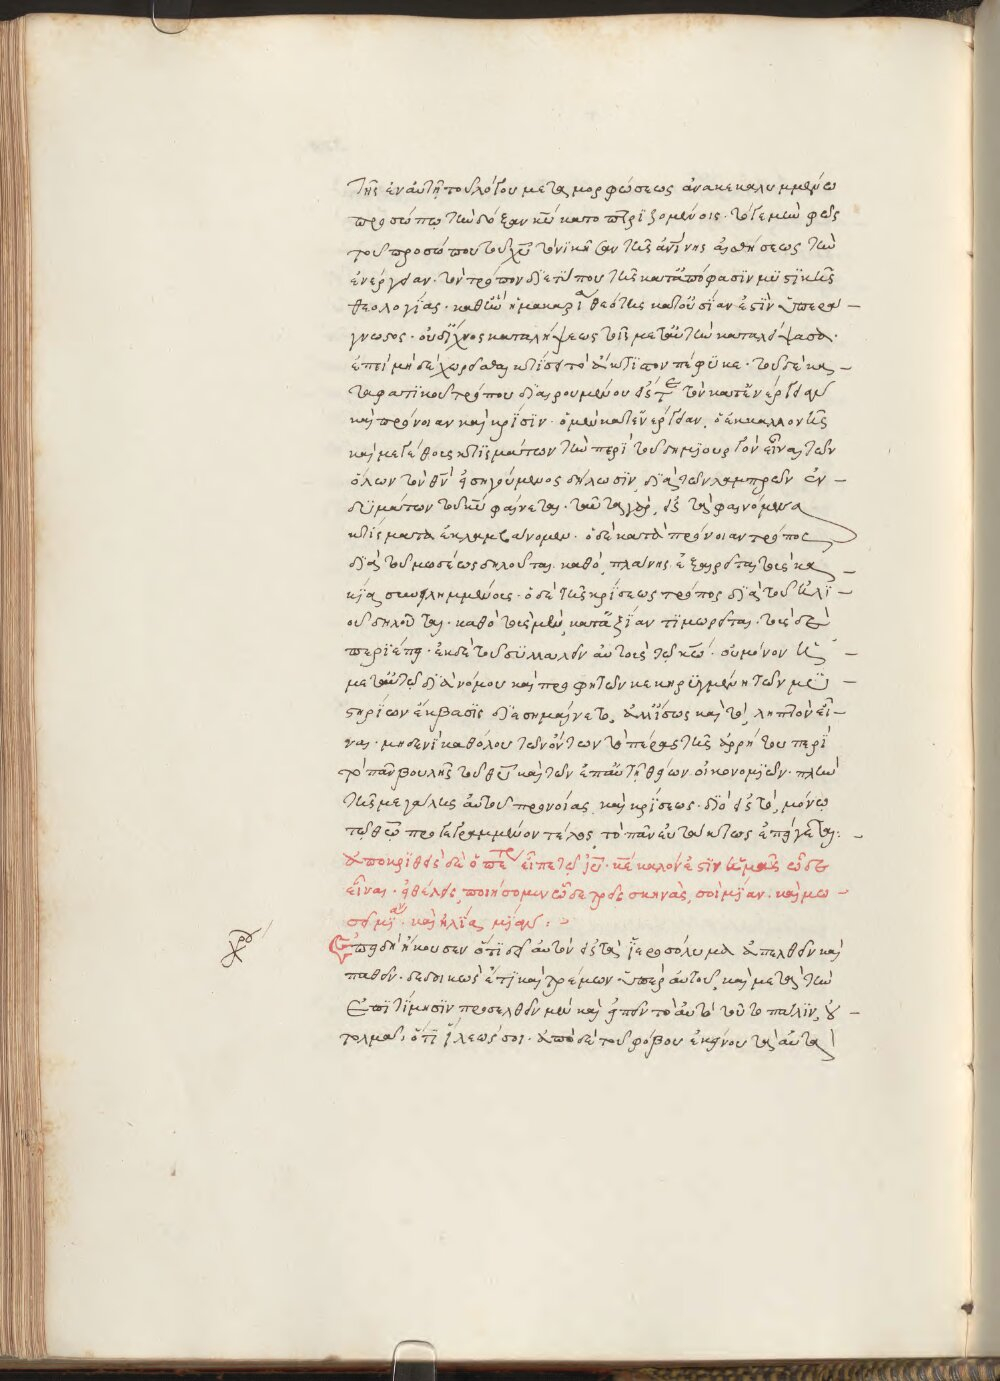 τῆς ἐν αὐτῇ τοῦ λόγου μεταμορφώσεως ἀνακεκαλυμμένω
προσώπω τὴν δόξαν κυ κατοπτριζομένοις. τὸ γε μὴν φῶς
τοῦ προσώπου τοῦ χυ τὸ νικῆσαν τῆς ἀνίνης αἰσθήσεως τὴν
ἐνέργειαν. τὸν τρόπον διετύπου τῆς κατὰ ἀπόφασιν μυστικῆς
θεολογίας. καθ' ὃν ἡ μακαρία θεότης κατ' οὐσίαν ἐστὶν ὑπερά-
γνωστος. οὐδ' ἴχνος καταλήψεως τοῖς μετ' αὐτὴν καταλείψασα.
ἐπεὶ μὴδὲ χωρεῖσθαι κτίσει τὸ ἄκτιστον πέφυκε. τοῦ δὲ κα-
ταφατικοῦ τρόπου διαιρουμένου εἰς τε τὸν κατ' ἐνέργειαν
καὶ πρόνοιαν καὶ κρίσιν. ὁ μὲν κατ' ἐνέργειαν, ὁ ἐκ καλλονῆς
καὶ μεγέθους κτισμάτων τὴν περὶ τοῦ δημιουργὸν εἶναι τῶν
ὅλων τὸν θν εἰσηγούμενος δήλωσιν, διὰ τῶν λαμπρῶν ἐν-
δυμάτων τοῦ κυ φαίνεται. ταῦτα γὰρ, εἰς τὰ φαινόμενα
κτίσματα ἐκλαμβάνομεν. ὁ δὲ κατὰ πρόνοιαν τρόπος
διὰ τοῦ μωσέως δηλοῦται. καθὸ, πλάνης ἐξαιρεῖται τοὺς κα-
κίᾳ συνειλημμένους. ὁ δὲ τῆς κρίσεως τρόπος διὰ τοῦ ἠλί-
ου δηλοῦται. καθὸ τοὺς μὲν, κατ' ἀξίαν τιμωρεῖται. τοὺς δὲ
περιέπει. ἐκ δὲ τοῦ συλλαλεῖν αὐτοὺς τῶ κω. οὐ μόνον ἡ
μετ' αὐτῷ διὰ νόμου καὶ προφητῶν κεκηρυγμένη τῶν μυ-
στηρίων ἔκβασις διεσημαίνετο, ἀλλ' ἴσως καὶ τὸ, ληπτὸν εἶ-
ναι. μηδενὶ καθόλου τῶν ὄντων τὸ πέρας τῆς ἀρρήτου περὶ
τὸ πᾶν βουλῆς τοῦ θυ καὶ τῶν ἐπ' αὐτῇ θείων οἰκονομιῶν. πλὴν
τῆς μεγάλης αὐτοῦ προνοίας, καὶ κρίσεως. διὸ εἰς τὸ, μόνῳ
τῷ θω προγεγραμμένον τέλος, τὸ πᾶν εὐτάκτως ἐπείγεται.
ἀποκριθεὶς δὲ ὁ πέτρ εἶπε τῷ ιυ. κε καλόν ἐστιν ἡμᾶς ὧδε
εἶναι. εἰ θέλεις, ποιήσομεν ὧδε τρεῖς σκηνὰς, σοὶ μίαν. καὶ μω-
σεῖ μίαν. καὶ ἠλίᾳ μίαν.
χρο
Ἐπειδὴ ἤκουσεν ὅτι δεῖ αὐτὸν εἰς τὰ ἱεροσόλυμα ἀπελθεῖν καὶ
παθεῖν. δεδοικὼς ἔτι καὶ τρέμων ὑπὲρ αὐτοῦ, καὶ μετὰ τὴν
ἐπιτίμησιν προσελθεῖν μὲν καὶ εἰπεῖν τὸ αὐτὸ τοῦτο πάλιν, οὐ
τολμᾷ. ὅτι ἵλεώς σοι. ἀπὸ δὲ τοῦ φόβου ἐκείνου τὰ αὐτὰ